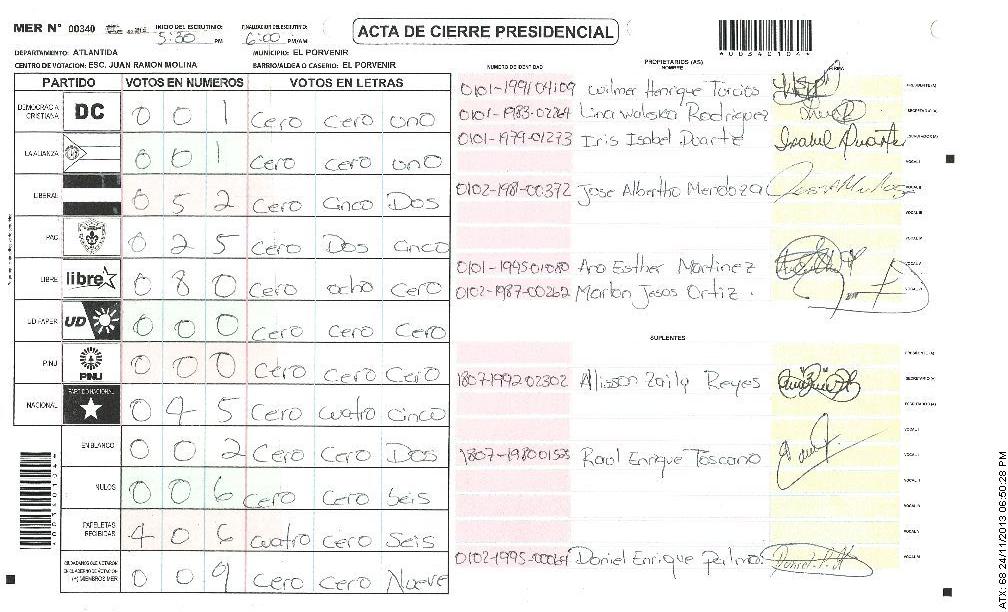 MER N° 00340
INICIO DEL ESCRUTINIO: 5:30 PM
FINALIZACION DEL ESCRUTINIO: 6:00 PM/AM
ACTA DE CIERRE PRESIDENCIAL
DEPARTAMENTO: ATLANTIDA
MUNICIPIO: EL PORVENIR
CENTRO DE VOTACION: ESC. JUAN RAMON MOLINA
BARRIO/ALDEA O CASERIO: EL PORVENIR
PARTIDO VOTOS EN NUMEROS VOTOS EN LETRAS
DEMOCRACIA CRISTIANA DC 0 0 1 Cero Cero uno
LA ALIANZA 0 0 1 Cero cero uno
LIBERAL 0 5 2 Cero Cinco Dos
PAC 0 2 5 Cero Dos cinco
LIBRE libre 0 8 0 Cero ocho Cero
UD FAPER UD 0 0 0 Cero Cero Cero
PINU PINU 0 0 0 Cero Cero Cero
NACIONAL PARTIDO NACIONAL 0 4 5 Cero cuatro cinco
EN BLANCO 0 0 2 Cero Cero Dos
NULOS 0 0 6 Cero Cero Seis
PAPELETAS RECIBIDAS 4 0 6 cuatro Cero Seis
CIUDADANOS QUE VOTARON
(+) MIEMBROS MER 0 0 9 Cero Cero Nueve
NUMERO DE IDENTIDAD
PROPIETARIOS (AS)
NOMBRE
FIRMA
0101-1991 04109 Wilmer Henrique Turcios PRESIDENTE (A)
0101-1983-02264 Lina Waleska Rodriguez SECRETARIO (A)
0101-1979-01273 Iris Isabel Duarte Isabel Duarte
VOCAL I
0102-1981-00372 Jose Albertho Mendoza VOCAL II
VOCAL III
VOCAL IV
0101-1995-01080 Ana Esther Martinez
0102-1987-00262 Marlon Jesos Ortiz
SUPLENTES
PRESIDENTE (A)
1807-1992-02302 Alisson Zoily Reyes SECRETARIO (A)
VOCAL I
Raul Enrique Toscano
VOCAL II
VOCAL III
0102-1995-00061 Daniel Enrique
ATX: 68 24/11/2013 06:50:28 PM